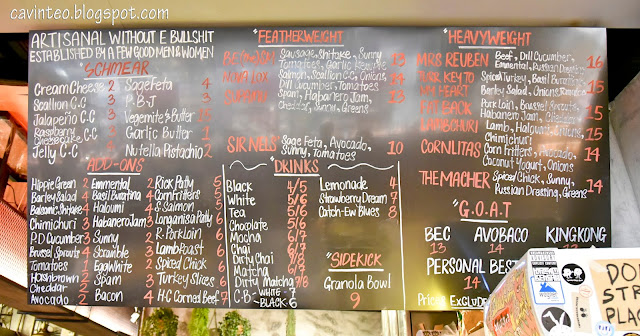 cavinteo.blogspot.com
ARTISANAL WITHOUT E BULLSHIT
ESTABLISHED BY A FEW GOOD MEN & WOMEN
*SCHMEAR
Cream Cheese 2
Scallion C.C 3
Jalapeño C.C 3
Raspberry Cheesecake C.C 3
Jelly C.C 2
Sage Feta 4
P.B.J 3
Vegemite & Butter
Garlic Butter 1
Nutella Pistachio 2
*ADD-ONS
Hippie Green 2
Barley Salad 4
Balsamic Shiitake 4
Chimichuri 3
P.D Cucumber 3
Brussel Sprouts 4
Tomatoes 1
Hashbrown 2
Cheddar 2
Avocado 2
Emmental 2
Basil Burrating 4
Haloumi 5
Habanero Jam 3
Sunny 2
Scramble 3
Egg White 2
Spam 3
Bacon 4
Rick Patty 5
Corn Fritters 5
S-Salmon 5
Longanisa Patty 5
R-Pork Loin 5
Lamb Roast 6
Spiced Chick 6
Turkey Slices 6
H.C Corned Beef 7
*FEATHERWEIGHT
Sausage, Shiitake, Sunny
Tomatoes, Garlic
NOVA LOX Salmon, Scallion C.C, Onions
Dill Cucumber, Tomatoes
Spam, Habanero Jam,
Cheddar, Sunny, Greens 13
SIR NELS Sage Feta, Avocado,
Sunny, Tomatoes 10
*DRINKS
Black 4/5
White 5/6
Tea 5/6
Chocolate 5/6
Mocha 5/6
Chai
Dirty Chai
Matcha
Dirty Matcha 7/8
C.B WHITE 7
BLACK 6
Lemonade 4
Strawberry Dream 7
Catch-Ew Blues 8
*SIDEKICK
Granola Bowl
9
*HEAVYWEIGHT
MRS REUBEN Beef, Dill Cucumber,
Emmental, Russian Dressing 16
TURKEY TO
MY HEART Spiced Turkey, Basil Burrating
Barley Salad, Onions, Tomatoes 15
HIT BACK Pork Loin, Brussel Sprouts,
Habanero Jam, 15
LAMBCHURI Lamb, Haloumi, Onions,
Chimichuri 15
CORNLITAS Corn Fritters, Avocado
Coconut Yogurt, Onions 14
THE MACHER Spiced Chick, Sunny,
Russian Dressing, Greens 14
*G.O.A.T
BEC AVOBACO KING KONG
13 14
PERSONAL BEST
14
Prices Exclude
DO
STR
PLA